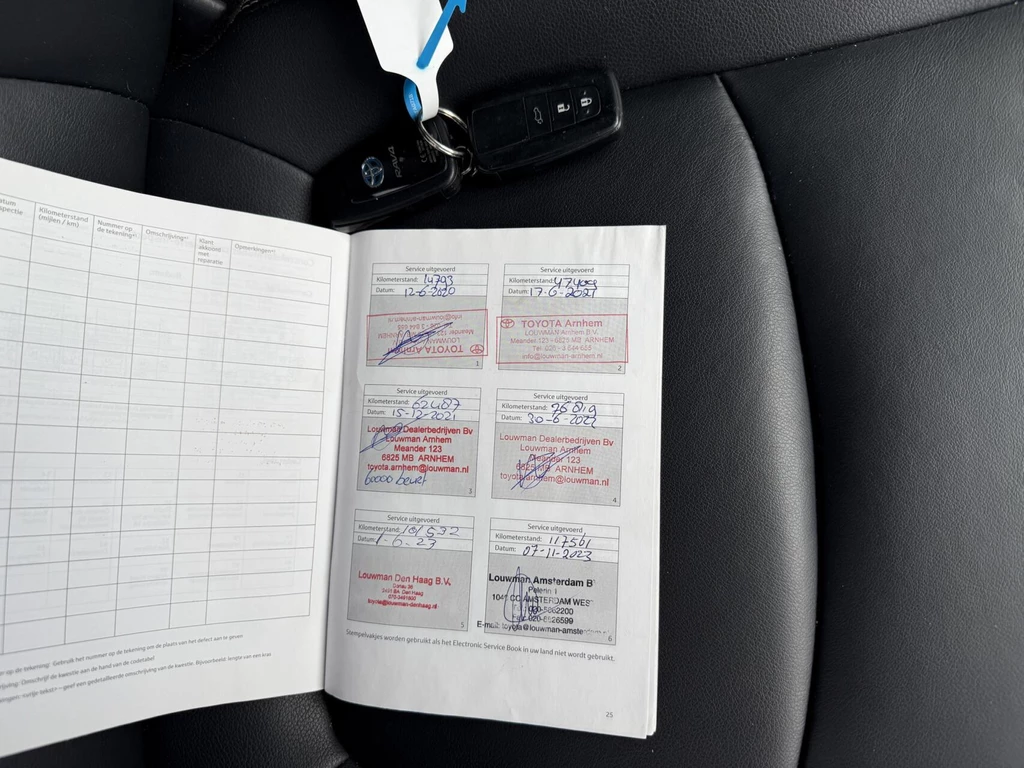 Kilometerstand
(mijlen / km)
Nummer op
de tekening*¹
Omschrijving*²
Klant
akkoord
met
reparatie
Opmerkingen*³
Gebruik het nummer op de tekening om de plaats van het defect aan te geven
Omschrijf de kwestie aan de hand van de codetabel
geef een gedetailleerde omschrijving van de kwestie. Bijvoorbeeld: lengte van een kras
Service uitgevoerd
Kilometerstand: 14793
Datum: 12-6-2020
TOYOTA Arnhem
LOUWMAN
Meander 123
info@louwman-arnhem.nl
1
Service uitgevoerd
Kilometerstand: 47409
Datum: 17-6-2021
TOYOTA Arnhem
LOUWMAN Arnhem B.V.
Meander 123 - 6825 MB ARNHEM
Tel. 026 - 3 644 655
info@louwman-arnhem.nl
2
Service uitgevoerd
Kilometerstand: 62487
Datum: 15-12-2021
Louwman Dealerbedrijven Bv
Louwman Arnhem
Meander 123
6825 MB ARNHEM
toyota.arnhem@louwman.nl
60000 beurt
3
Service uitgevoerd
Kilometerstand: 76819
Datum: 30-6-2022
Louwman Dealerbedrijven Bv
Louwman Arnhem
Meander 123
6825 MB ARNHEM
toyota.arnhem@louwman.nl
4
Service uitgevoerd
Kilometerstand: 101532
Datum: 1-6-23
Louwman Den Haag B.V.
Donau 36
Den Haag
toyota@louwman-denhaag.nl
5
Service uitgevoerd
Kilometerstand: 117561
Datum: 07-11-2023
Louwman Amsterdam B
CC AMSTERDAM WEST
E-mail: toyota@louwman-amsterdam
6
Stempelvakjes worden gebruikt als het Electronic Service Book in uw land niet wordt gebruikt.
25